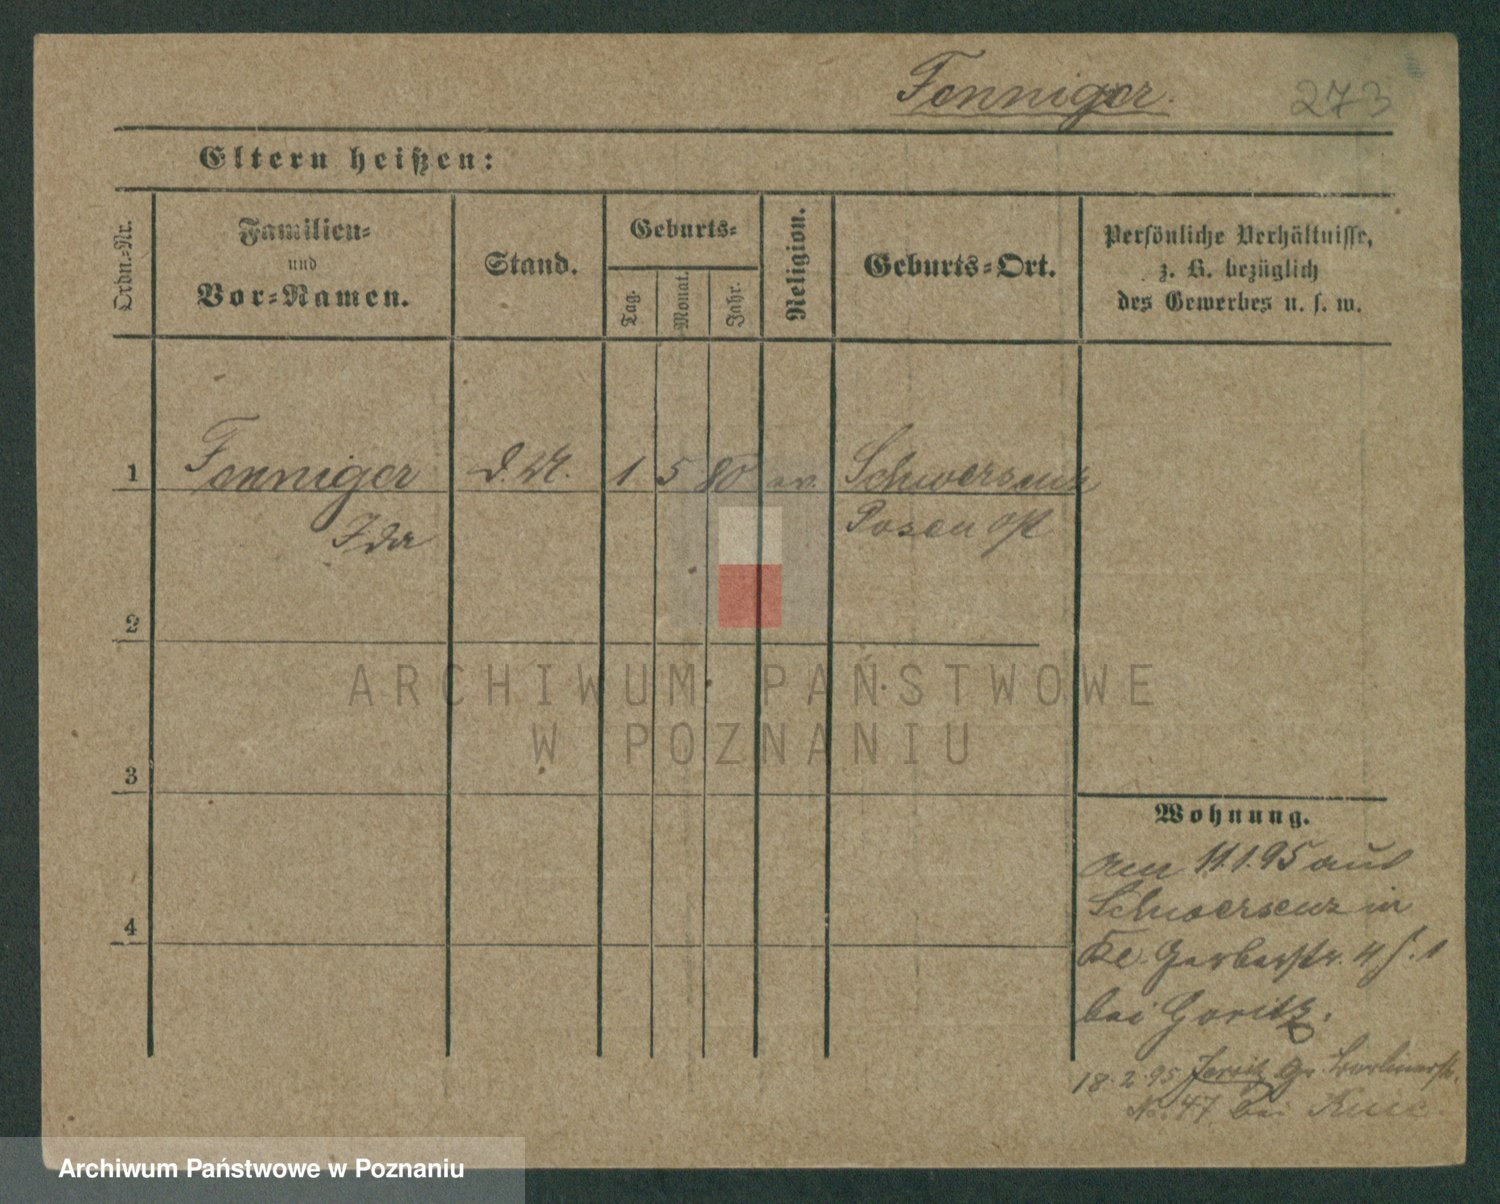 Fenniger.
273
Eltern heißen:
Ordn.-Nr.
Familien-
und
Vor-Namen.
Stand.
Geburts-
Tag.
Monat.
Jahr.
Religion.
Geburts-Ort.
Persönliche Verhältnisse,
z. B. bezüglich
des Gewerbes u. s. w.
1 Fenniger d. M. 1. 5 80 ev. Schwersenz
Ida Posen Ost
2
3
4
ARCHIWUM PAŃSTWOWE
W POZNANIU
Wohnung.
am 11.1.95 aus
Schwersenz in
Kl. Gerberstr. 4 1
bei Goritz.
18.2.95 Jersitz Gr. Berlinerstr.
No. 47 bei
Archiwum Państwowe w Poznaniu